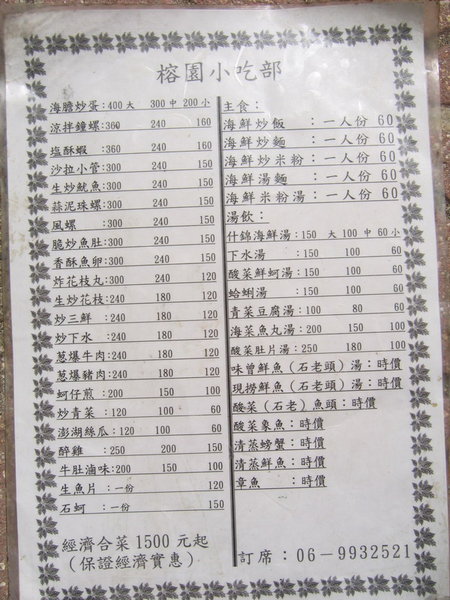 榕園小吃部
海膽炒蛋:400大 300中 200小
涼拌鐘螺:360 240 160
塩酥蝦:360 240 160
沙拉小管:300 240 150
生炒魷魚:300 240 150
蒜泥珠螺:300 240 150
風螺:300 240 150
脆炒魚肚:300 240 150
香酥魚卵:300 240 150
炸花枝丸:300 240 120
生炒花枝:240 180 120
炒三鮮:240 180 120
炒下水:240 180 120
蔥爆牛肉:240 180 120
蔥爆豬肉:240 180 120
蚵仔煎:200 150 100
炒青菜:120 100 60
澎湖絲瓜:120 100 60
醉雞:250 200 150
牛肚滷味:200 150 100
生魚片:一份 120
石蚵:一份 150
經濟合菜1500元起
(保證經濟實惠)
主食:
海鮮炒飯:一人份 60
海鮮炒麵:一人份 60
海鮮炒米粉:一人份 60
海鮮湯麵:一人份 60
海鮮米粉湯:一人份 60
湯飲:
什錦海鮮湯:150大 100中 60小
下水湯:150 100 60
酸菜鮮蚵湯:150 100 60
蛤蜊湯:150 100 60
青菜豆腐湯:100 80 60
海菜魚丸湯:200 150 100
酸菜肚片湯:250 180 100
味曾鮮魚(石老頭)湯:時價
現撈鮮魚(石老頭)湯:時價
酸菜(石老)魚頭:時價
酸菜象魚:時價
清蒸螃蟹:時價
清蒸鮮魚:時價
章魚:時價
訂席:06-9932521